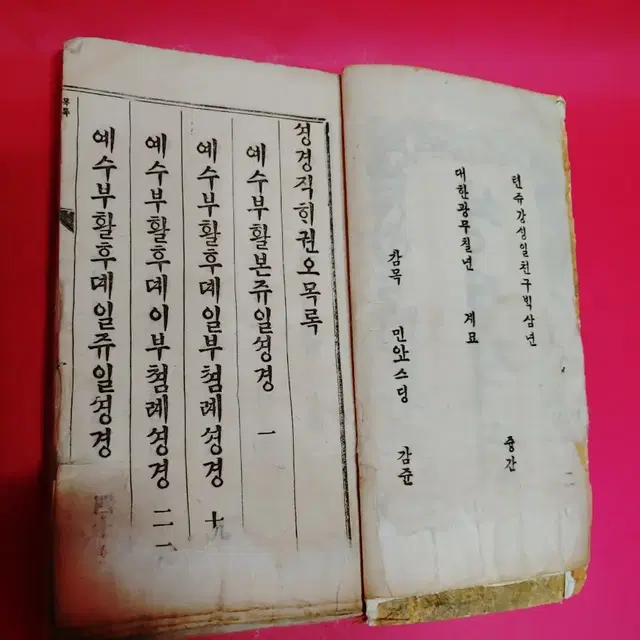 텬쥬강싱일쳔구빅삼년 즁간
대한광무칠년 계묘
감목 민아오스딩 감쥰
셩경직희권오목록
예수부활본쥬일셩경 一
예수부활후뎨일부쳠례셩경 十
예수부활후뎨이부쳠례셩경 二一
예수부활후뎨일쥬일셩경
목록